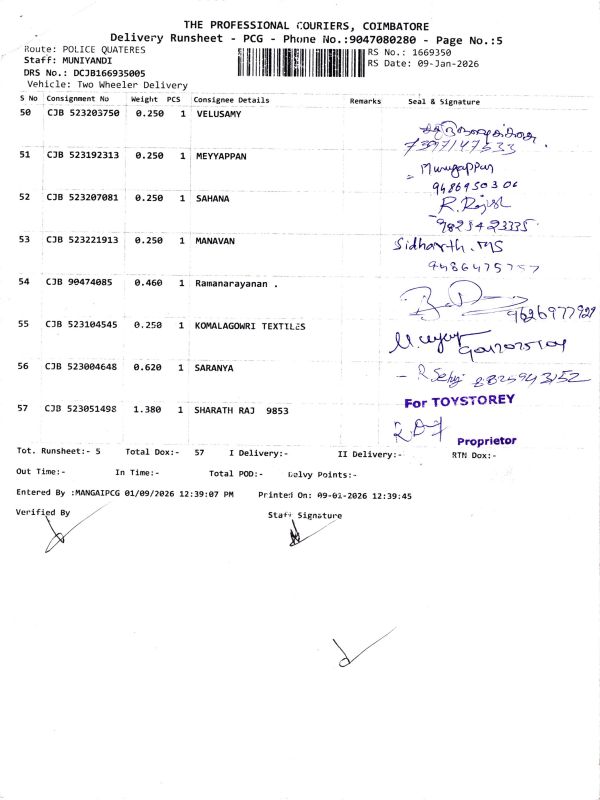 THE PROFESSIONAL COURIERS, COIMBATORE
Delivery Runsheet - PCG - Phone No.:9047080280 - Page No.:5
Route: POLICE QUATERES
RS No.: 1669350
Staff: MUNIYANDI
RS Date: 09-Jan-2026
DRS No.: DCJB166935005
Vehicle: Two Wheeler Delivery
S No Consignment No Weight PCS Consignee Details Remarks Seal & Signature
50 CJB 523203750 0.250 1 VELUSAMY
7397147533
51 CJB 523192313 0.250 1 MEYYAPPAN
Murugappan
52 CJB 523207081 0.250 1 SAHANA
R. Rajesh
53 CJB 523221913 0.250 1 MANAVAN
Sidharth. MS
54 CJB 90474085 0.460 1 Ramanarayanan .
55 CJB 523104545 0.250 1 KOMALAGOWRI TEXTILES
56 CJB 523004648 0.620 1 SARANYA
8825943152
57 CJB 523051498 1.380 1 SHARATH RAJ 9853
For TOYSTOREY
Proprietor
Tot. Runsheet:- 5 Total Dox:- 57 I Delivery:- II Delivery:- RTN Dox:-
Out Time:- In Time:- Total POD:- Delvy Points:-
Entered By :MANGAIPCG 01/09/2026 12:39:07 PM Printed On: 09-01-2026 12:39:45
Verified By Staff Signature